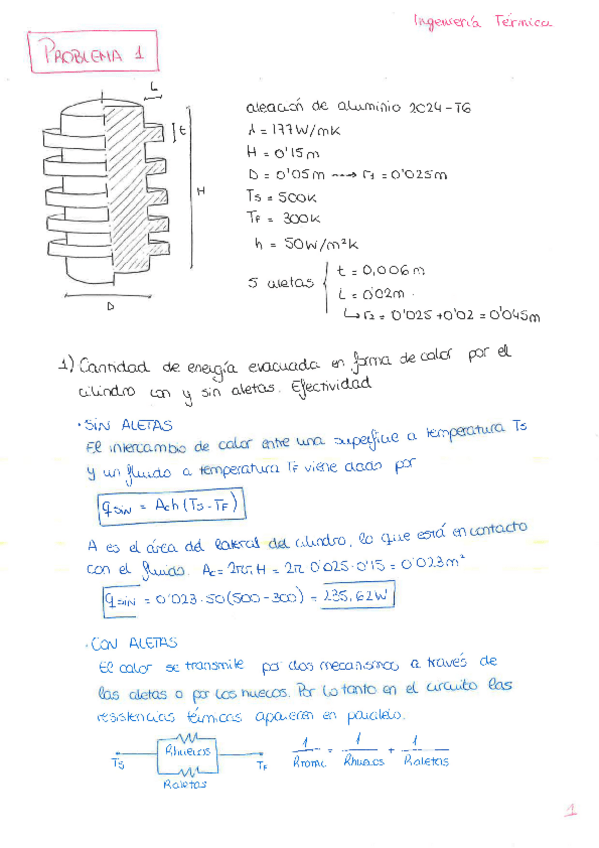 Ingeniería Térmica
PROBLEMA 1
L
t
H
D
aleación de aluminio 2024-T6
λ = 177 W/mK
H = 0'15 m
D = 0'05 m ---> r1 = 0'025 m
Ts = 500K
TF = 300K
h = 50 W/m²K
5 aletas { t = 0,006 m
L = 0'02 m.
↳ r2 = 0'025 + 0'02 = 0'045 m
1) Cantidad de energía evacuada en forma de calor por el
cilindro con y sin aletas. Efectividad
· SIN ALETAS
El intercambio de calor entre una superficie a temperatura Ts
y un fluido a temperatura TF viene dado por
qSIN = Ac h (Ts - TF)
A es el área del lateral del cilindro, lo que está en contacto
con el fluido. Ac = 2πr1 H = 2π 0'025 · 0'15 = 0'023 m²
qSIN = 0'023 · 50 (500 - 300) = 235,62 W
· CON ALETAS
El calor se transmite por dos mecanismos, a través de
las aletas o por los huecos. Por lo tanto en el circuito las
resistencias térmicas aparecen en paralelo.
Ts Rhuecos TF
Raletas
1/Rtotal = 1/Rhuecos + 1/Raletas
1